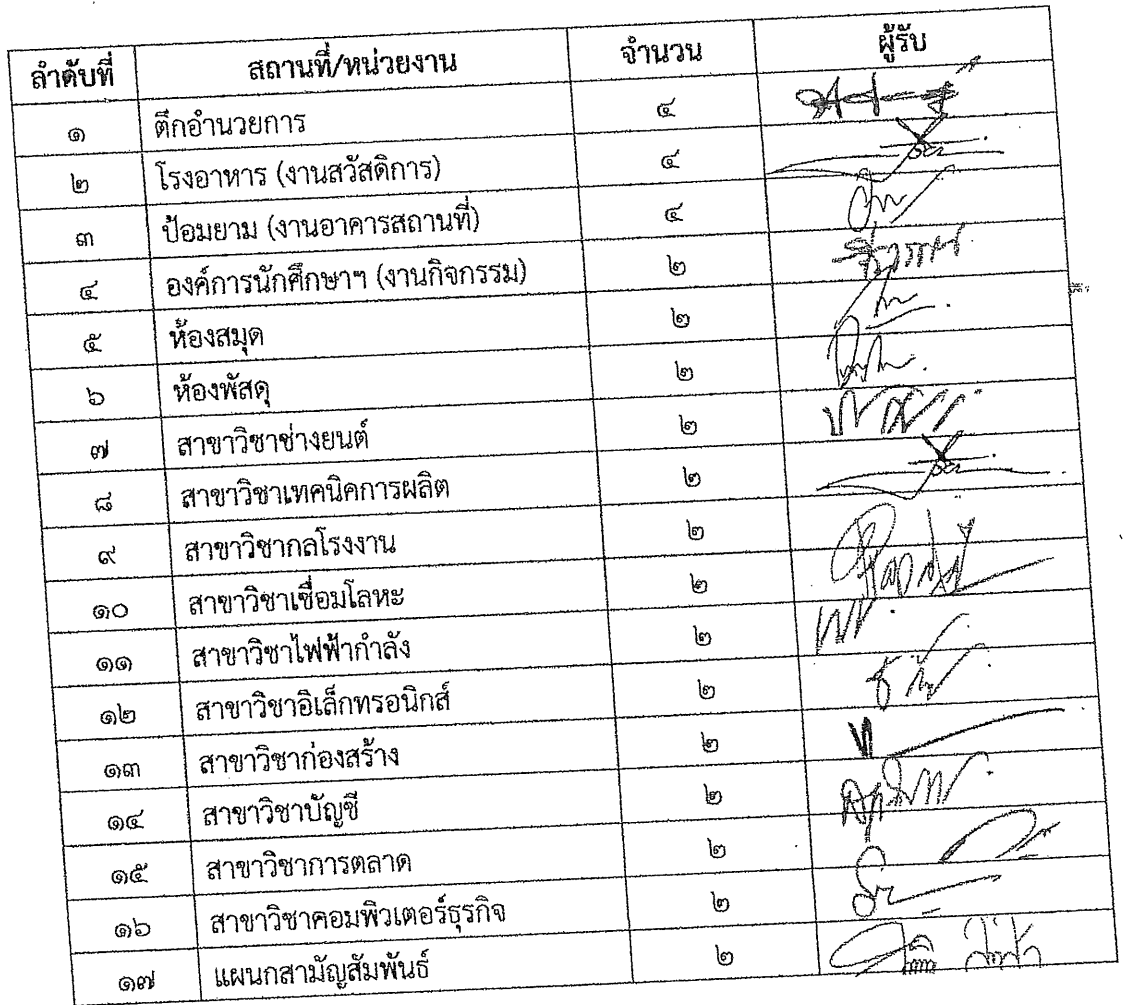 ลำดับที่ สถานที่/หน่วยงาน จำนวน ผู้รับ
๑ ตึกอำนวยการ ๔
๒ โรงอาหาร (งานสวัสดิการ) ๔
๓ ป้อมยาม (งานอาคารสถานที่) ๔
๔ องค์การนักศึกษาฯ (งานกิจกรรม) ๒
๕ ห้องสมุด ๒
๖ ห้องพัสดุ ๒
๗ สาขาวิชาช่างยนต์ ๒
๘ สาขาวิชาเทคนิคการผลิต ๒
๙ สาขาวิชากลโรงงาน ๒
๑๐ สาขาวิชาเชื่อมโลหะ ๒
๑๑ สาขาวิชาไฟฟ้ากำลัง ๒
๑๒ สาขาวิชาอิเล็กทรอนิกส์ ๒
๑๓ สาขาวิชาก่องสร้าง ๒
๑๔ สาขาวิชาบัญชี ๒
๑๕ สาขาวิชาการตลาด ๒
๑๖ สาขาวิชาคอมพิวเตอร์ธุรกิจ ๒
๑๗ แผนกสามัญสัมพันธ์ ๒